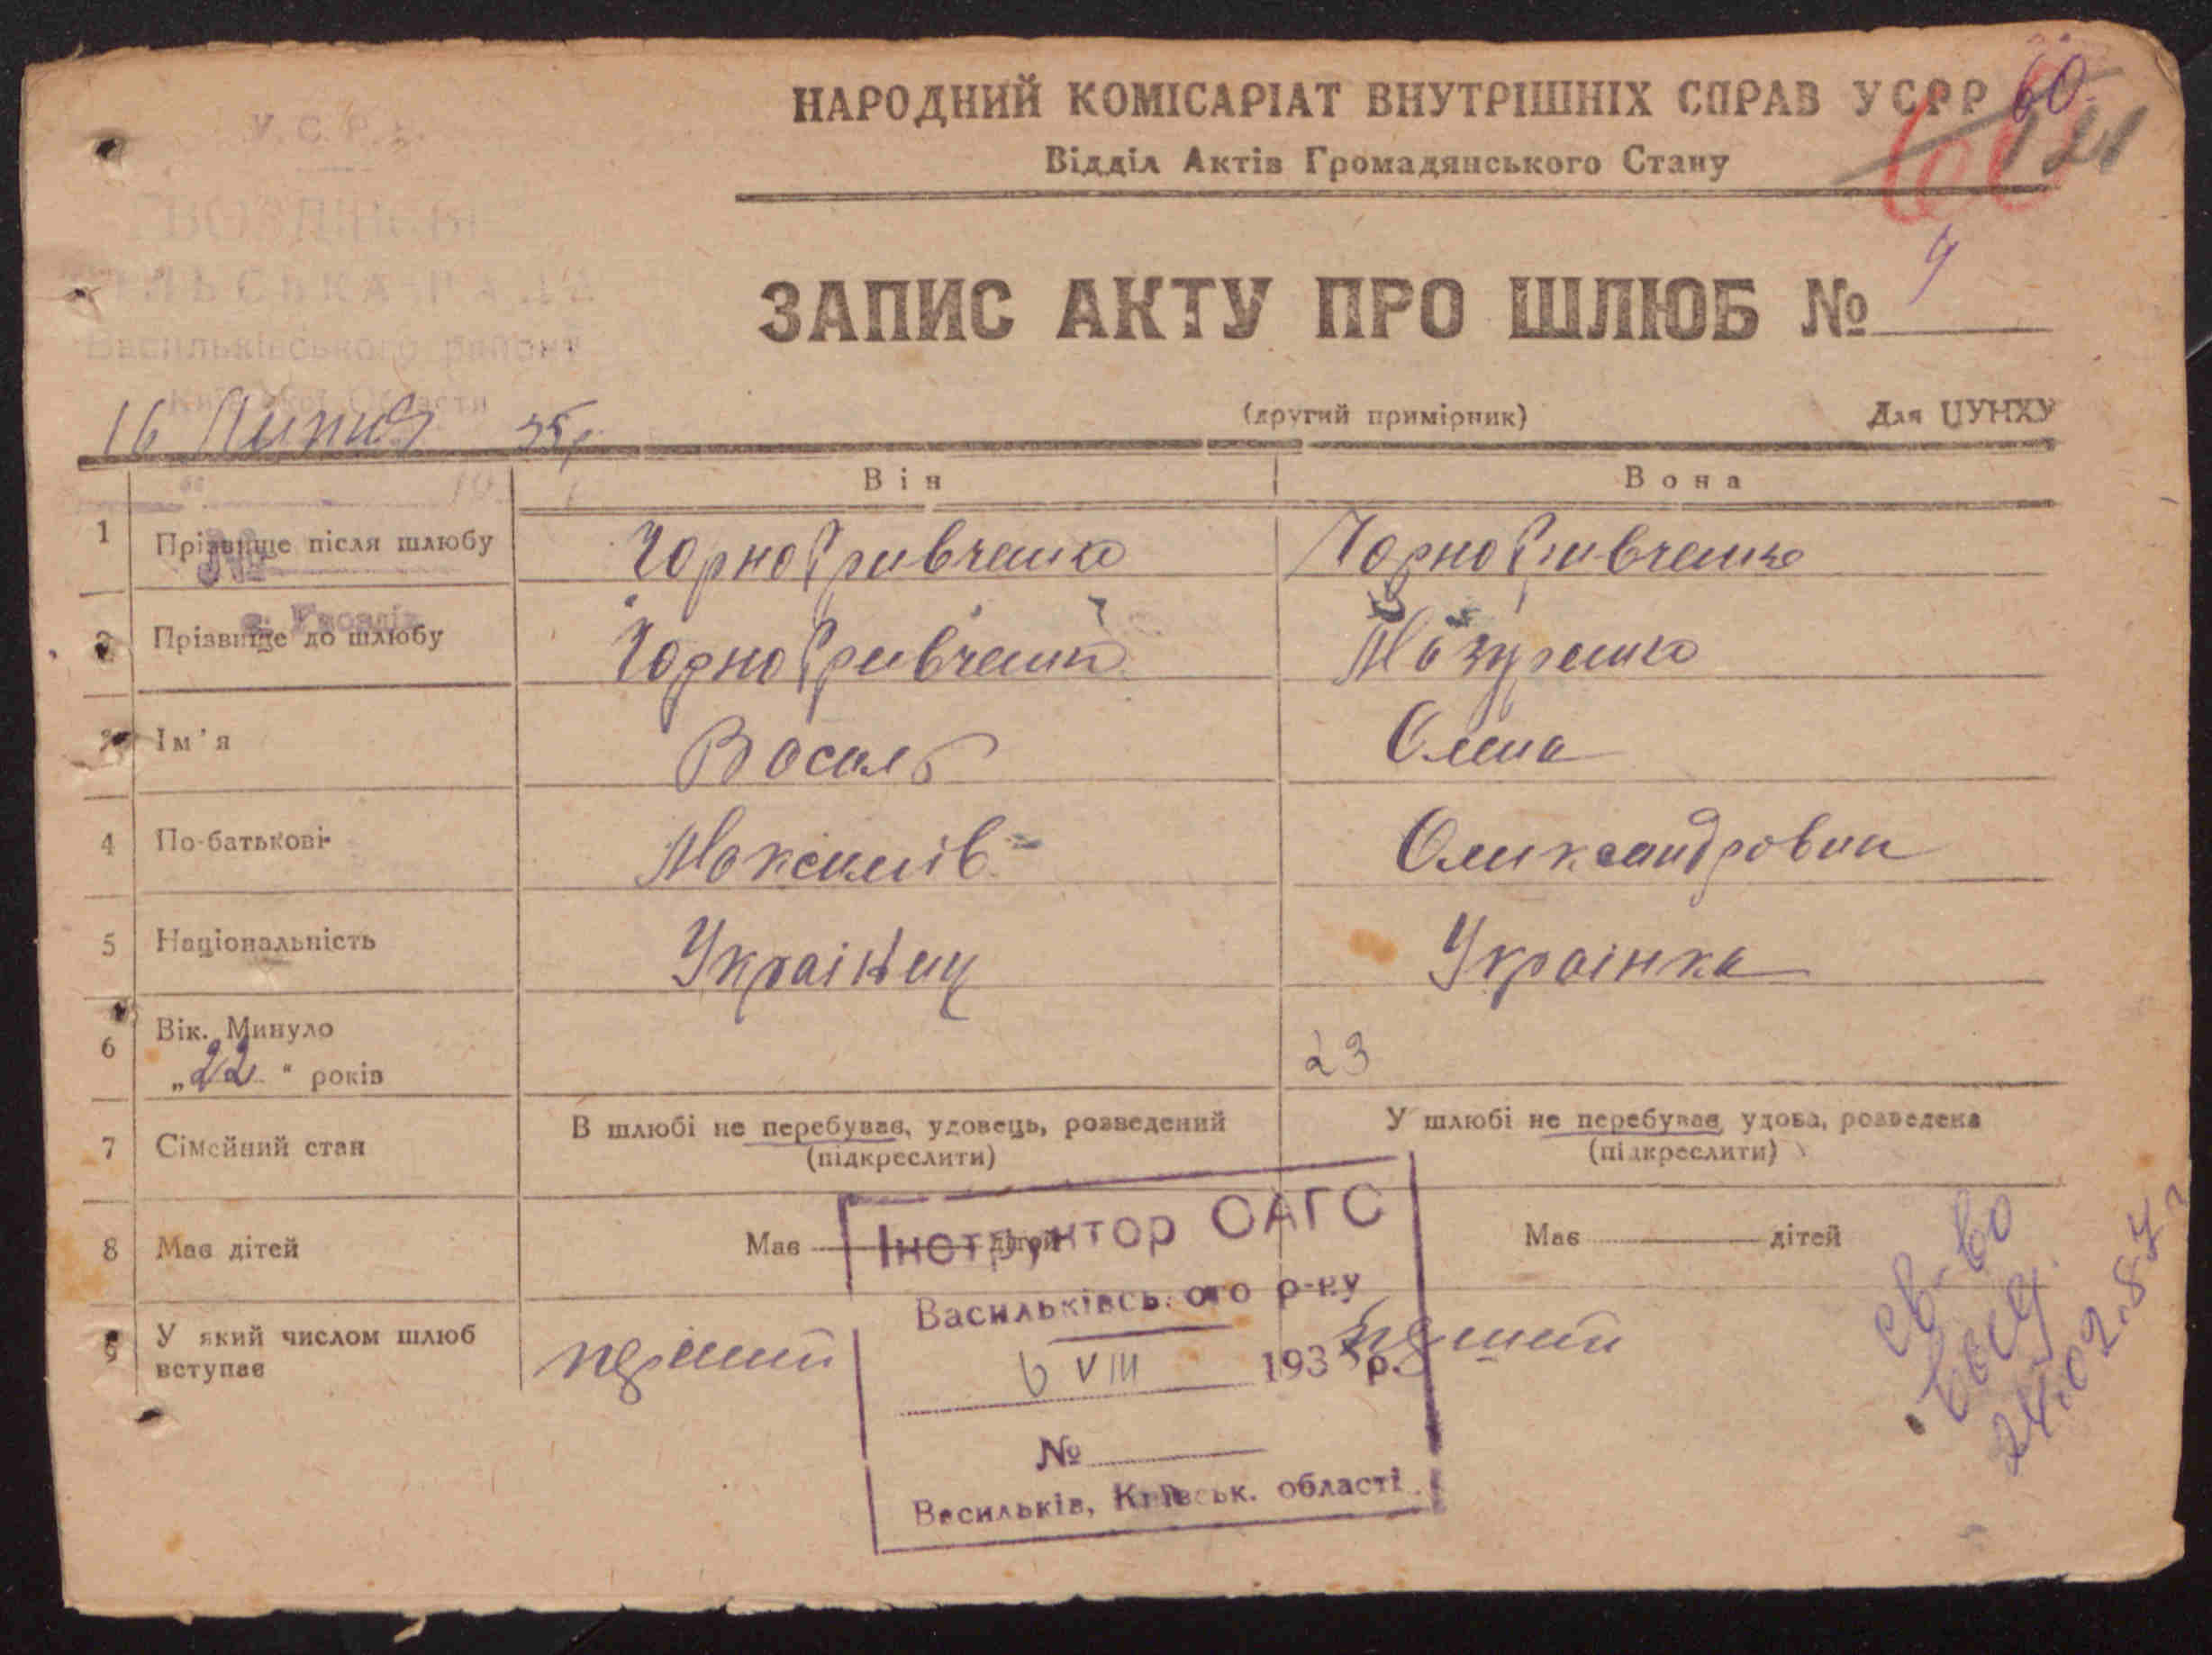 У.С.Р.Р.
ГВОЗДІВСЬКА
СІЛЬСЬКА РАДА
Васильківського району
Київської Області
16 Липня 35р.
№
с. Гвоздів
НАРОДНИЙ КОМІСАРІАТ ВНУТРІШНІХ СПРАВ УСРР
60
121
Відділ Актів Громадянського Стану
ЗАПИС АКТУ ПРО ШЛЮБ № 9
(другий примірник) Для ЦУНХУ
Він Вона
1 Прізвище після шлюбу Чорногривченко Чорногривченко
2 Прізвище до шлюбу Чорногривченко Мазуренко
3 Ім'я Василь Олена
4 По-батькові Максимів Олександровна
5 Національність Українец Українка
6 Вік. Минуло
„22" років 23
7 Сімейний стан В шлюбі не перебував, удовець, розведений У шлюбі не перебував, удова, розведена
(підкреслити) (підкреслити)
8 Має дітей Має дітей Має дітей
9 У який числом шлюб
вступає перший перший
Інструктор ОАГС
Васильківського р-ну
6 VIII 1935 р.
№
Васильків, Київськ. області
св-во
24.02.87